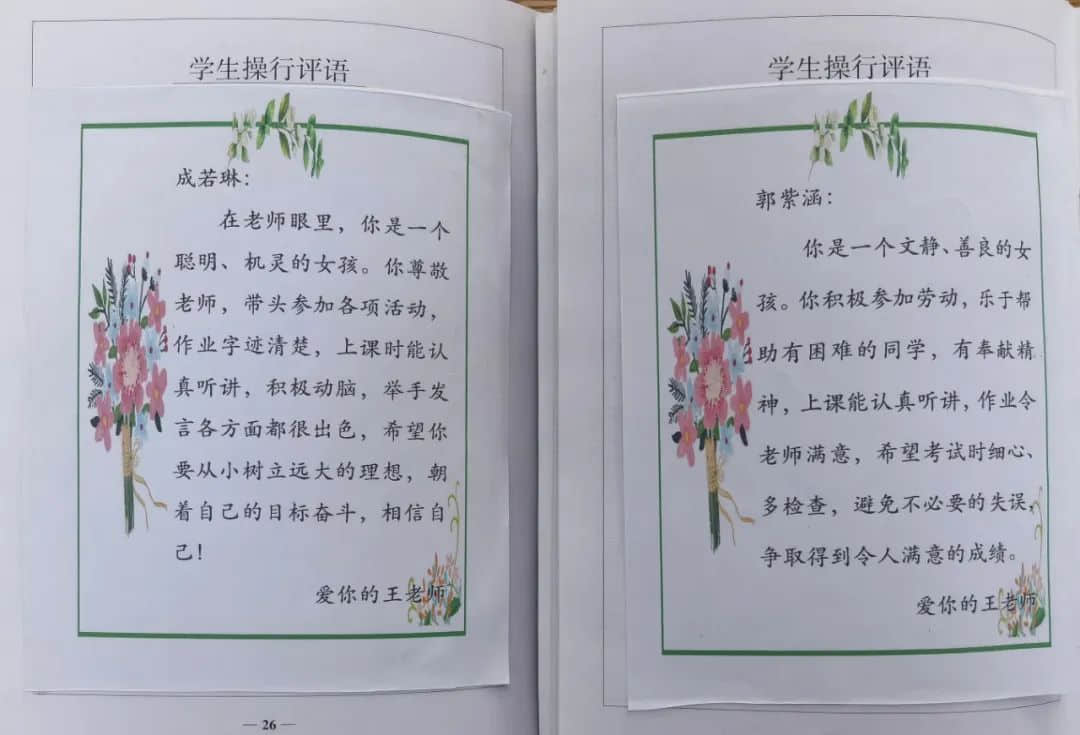 学生操行评语
成若琳：
在老师眼里，你是一个
聪明、机灵的女孩。你尊敬
老师，带头参加各项活动，
作业字迹清楚，上课时能认
真听讲，积极动脑，举手发
言各方面都很出色，希望你
要从小树立远大的理想，朝
着自己的目标奋斗，相信自
己！
爱你的王老师
— 26 —
学生操行评语
郭紫涵：
你是一个文静、善良的女
孩。你积极参加劳动，乐于帮
助有困难的同学，有奉献精
神，上课能认真听讲，作业令
老师满意，希望考试时细心、
多检查，避免不必要的失误，
争取得到令人满意的成绩。
爱你的王老师